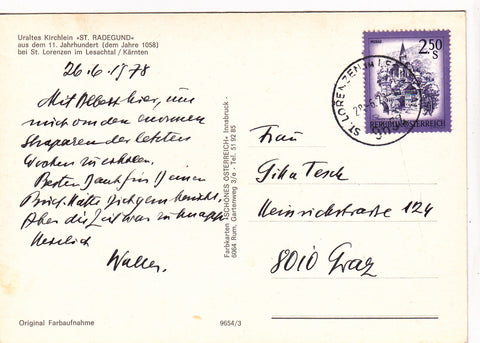 Uraltes Kirchlein «ST. RADEGUND»
aus dem 11. Jahrhundert (dem Jahre 1058)
bei St. Lorenzen im Lesachtal / Kärnten
26.6.1978
Mit Albert hier, um
mich von den enormen
Strapazen der letzten
Wochen zu erholen.
Besten Dank für Deinen
Brief. Hätte Dich gern besucht.
Aber die Zeit war zu knapp.
Herzlich
Walter
Original Farbaufnahme
9654/3
Farbkarten «SCHÖNES ÖSTERREICH» Innsbruck -
6064 Rum, Gartenweg 3/e - Tel. 51 92 85
2.50
S
REPUBLIK ÖSTERREICH
ST. LORENZEN IM
Frau
Gika Tesch
Heinrichstrasse 124
8010 Graz